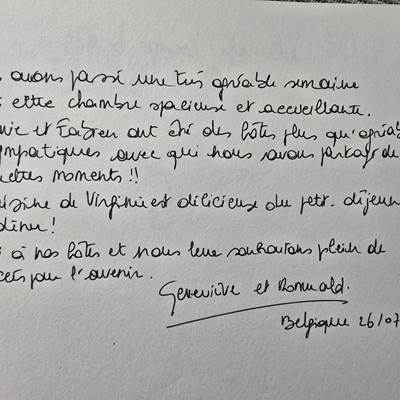 avons passé une très agréable semaine
cette chambre spacieuse et accueillante.
et Fabien ont été des hôtes plus qu'agréab
ympatiques avec qui nous avons partagé de
moments !!
isine de Virginie est délicieuse du petit. déjeun
dîner !
à nos hôtes et nous leur souhaitons plein de
cès pour l'avenir.
Geneviève et Romuald.
Belgique 26/07